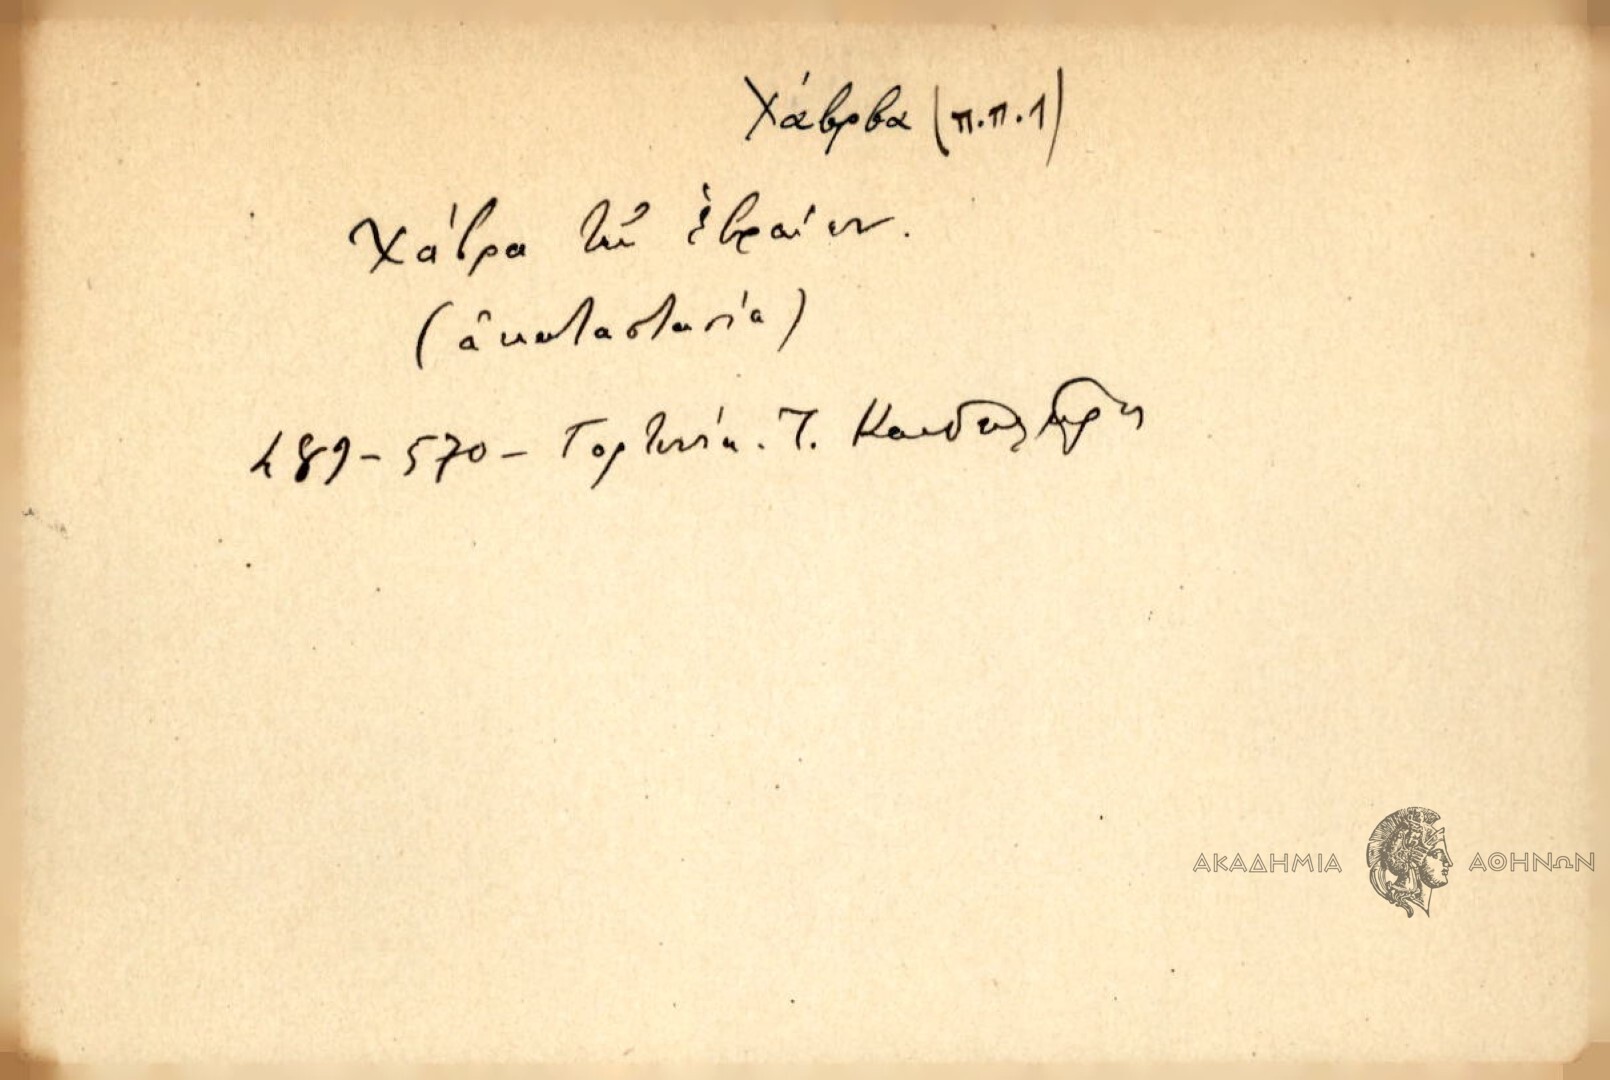 Χάβρβα (π.π.1)
Χάβρα τῶν ἑβραίων.
(ἀκαταστασία)
489-570- Γορτυνία. Τ. Κανδηλώρης
ΑΚΑΔΗΜΙΑ ΑΘΗΝΩΝ